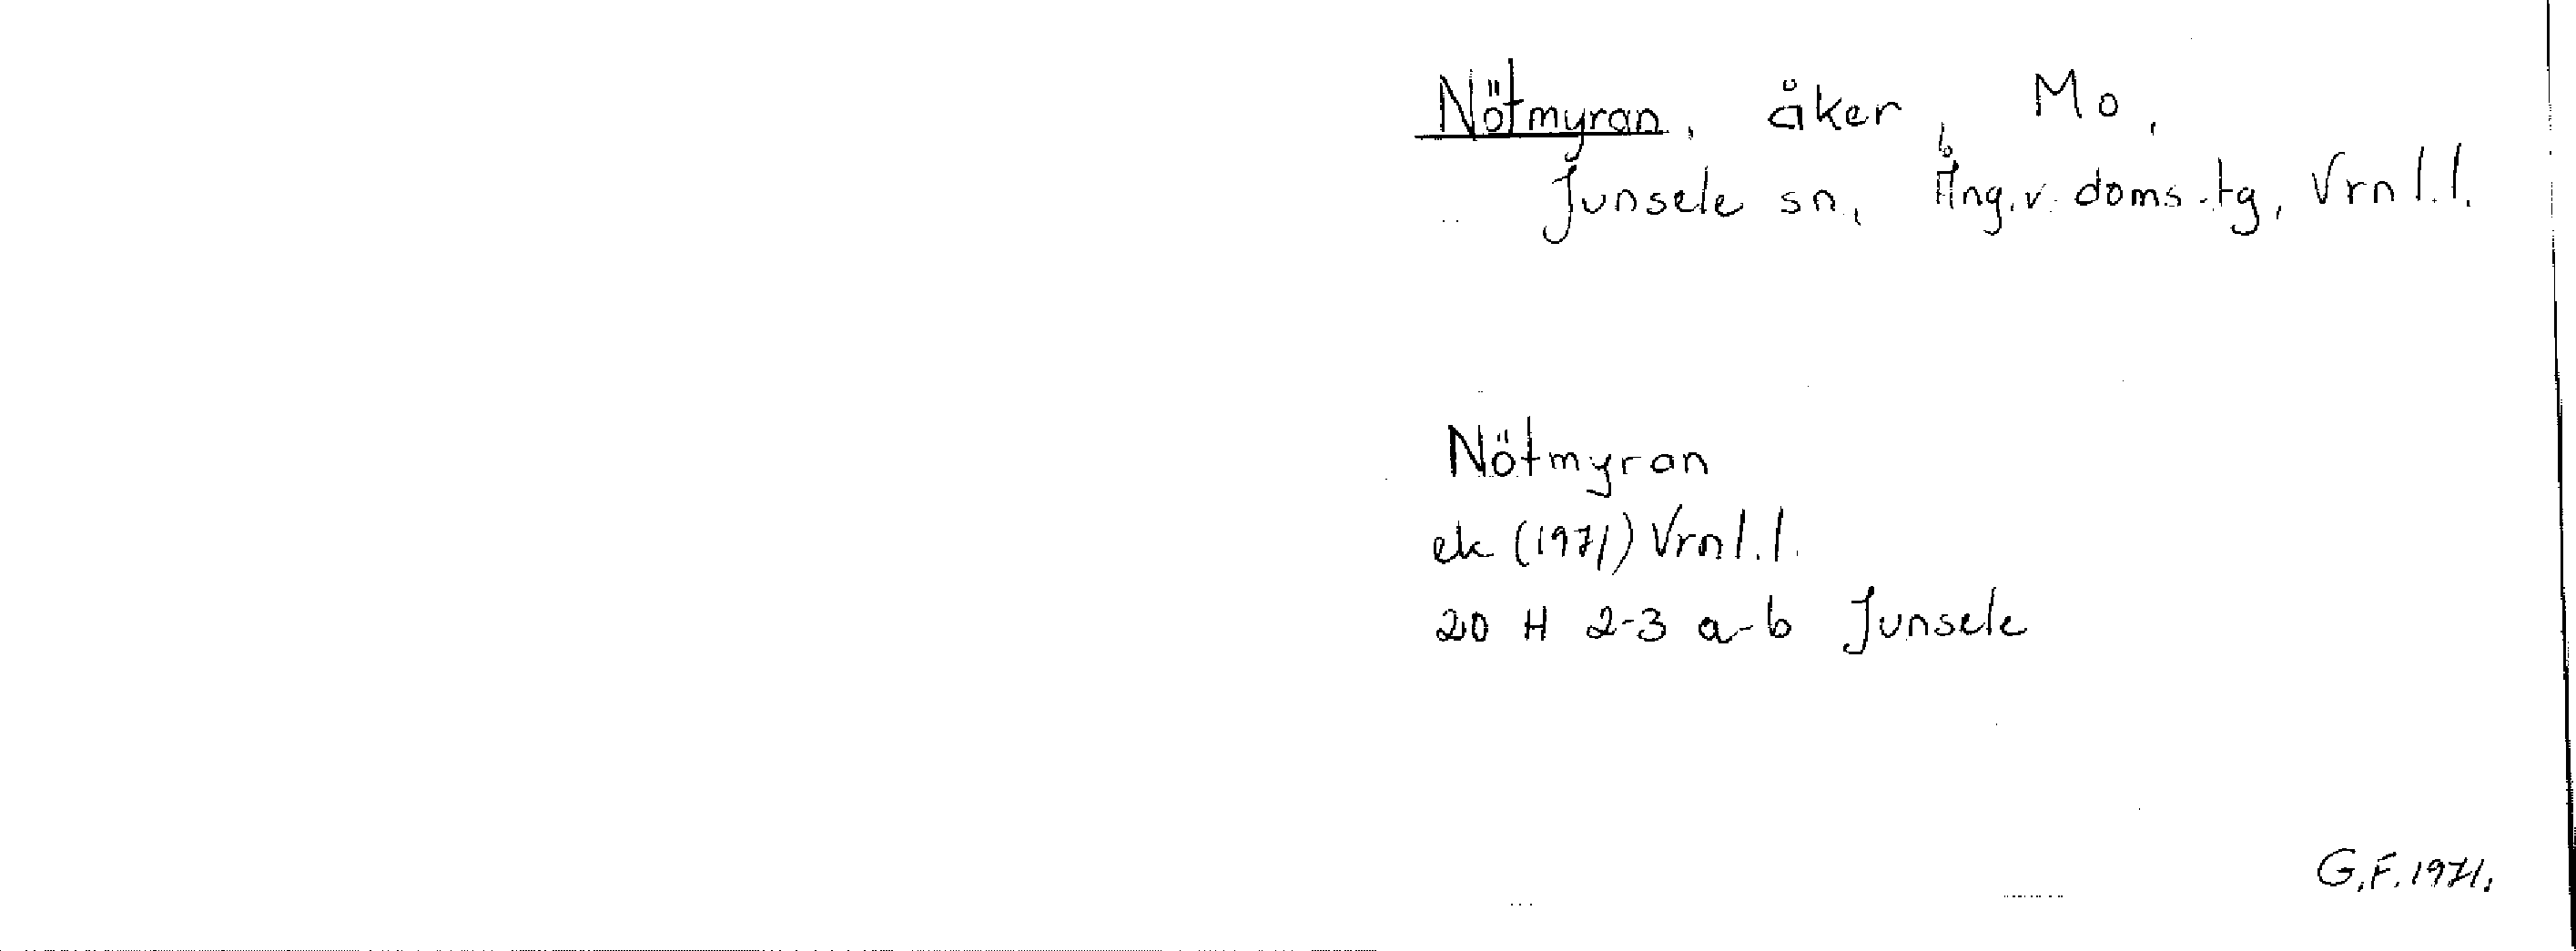 Nötmyran, åker, Mo,
Junsele sn, Ång.v. doms.tg, Vrnl.l.
Nötmyran
ek (1971) Vrnl.l.
20 H 2-3 a-b Junsele
G.F. 1971.